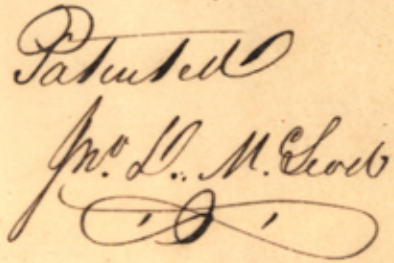 Patented
Jno. D. McLeod